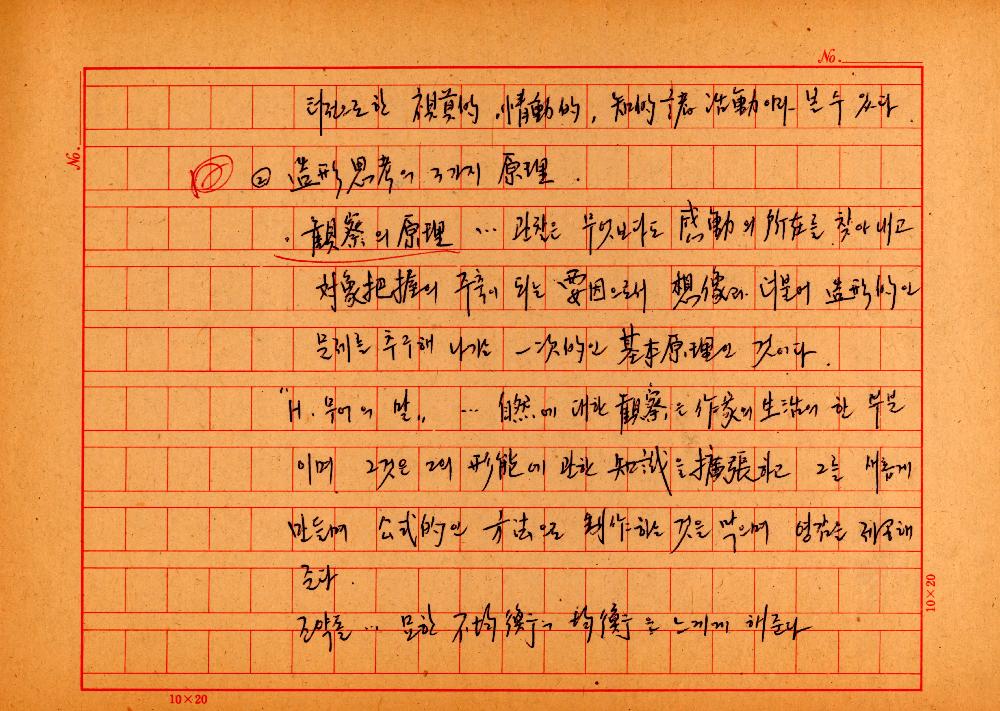 No.
터전으로 한 視覚的, 情動的, 知的 活動이라 볼 수 있다.
② 造形思考의 3가지 原理.
· 観察의 原理 … 관찰은 무엇보다도 感動의 所在를 찾아내고
対象把握의 주축이 되는 要因으로서 想像과 더불어 造形的인
문제를 추구해 나가는 一次的인 基本原理인 것이다.
"H. 무어의 말" … 自然에 대한 観察은 作家의 生活의 한 부분
이며 그것은 그의 形態에 관한 知識을 擴張하고 그를 새롭게
만들며 公式的인 方法으로 制作하는 것을 막으며 영감을 제공해
준다.
조약돌 … 묘한 不均衡의 均衡을 느끼게 해준다
No.
10×20
10×20